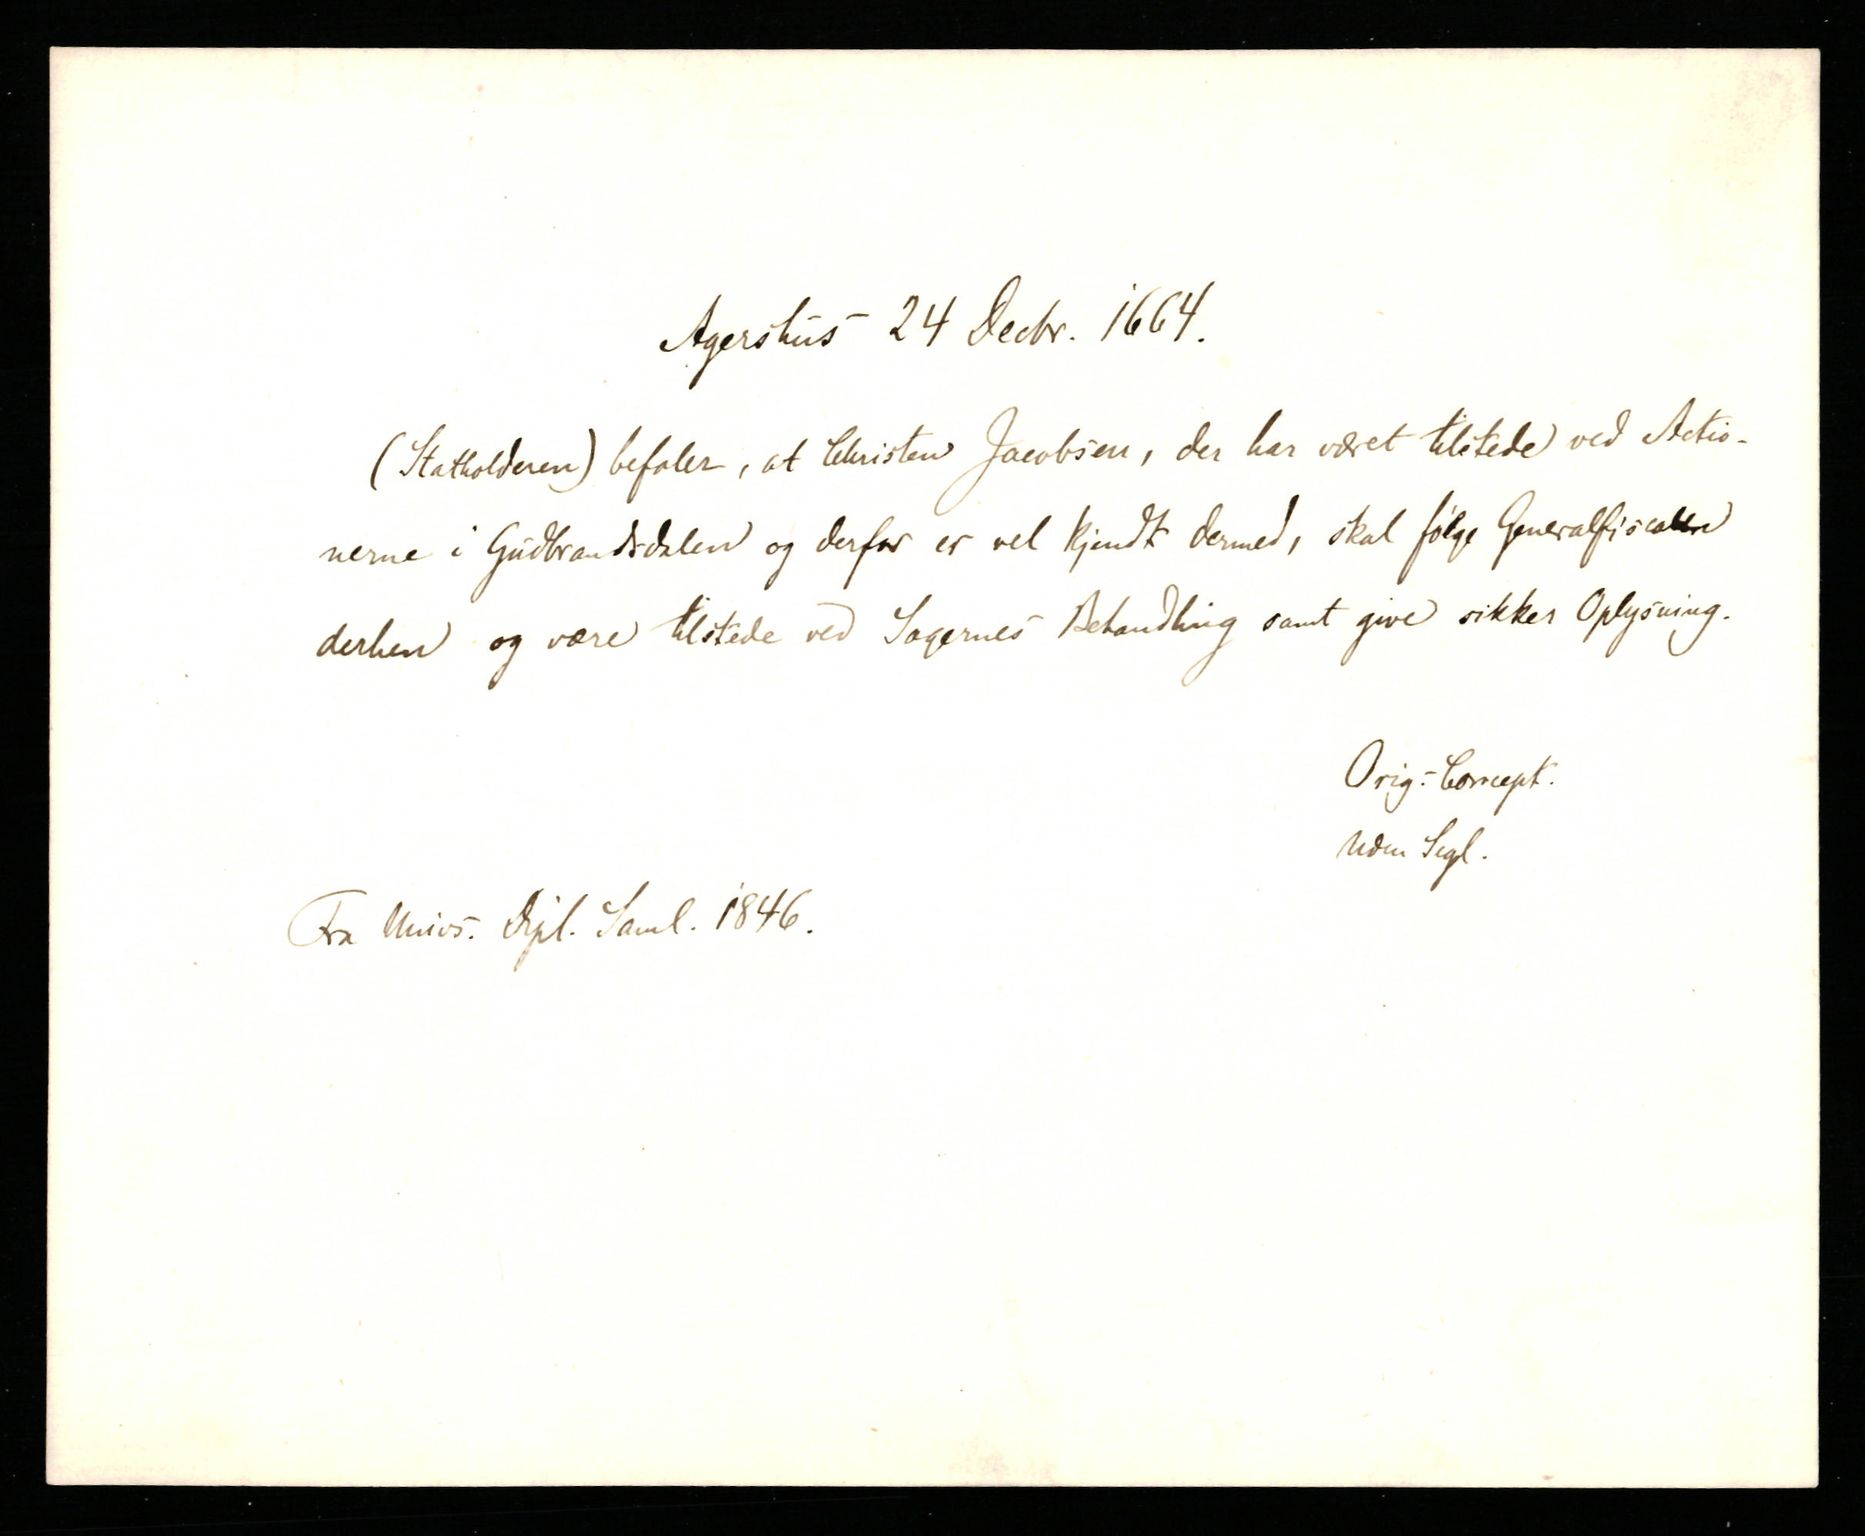 Agershus 24 Decbr. 1664.
(Statholderen) befaler, at Christen Jacobsen, der har været tilstede ved Actio-
nerne i Gudbrandsdalen og derfor er vel kjendt dermed, skal følge Generalfiscalen
derhen og være tilstede ved Sagernes Behandling samt give sikker Oplysning.
Orig.-Concept.
Uden Segl.
Fra Univs. Dipl. Saml. 1846.